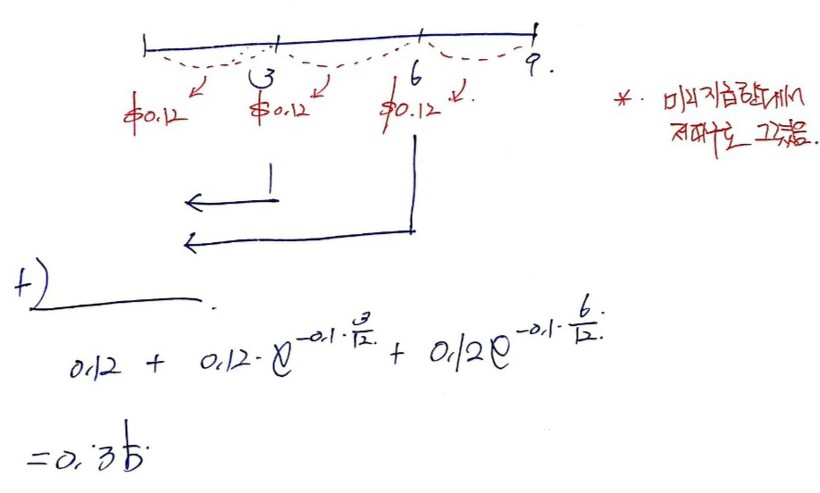 3 6 9.
$0.12 $0.12 $0.12
* 미리지급한대서
+)
0.12 + 0.12·e^{-0.1·\frac{3}{12}} + 0.12e^{-0.1·\frac{6}{12}}
=0.35